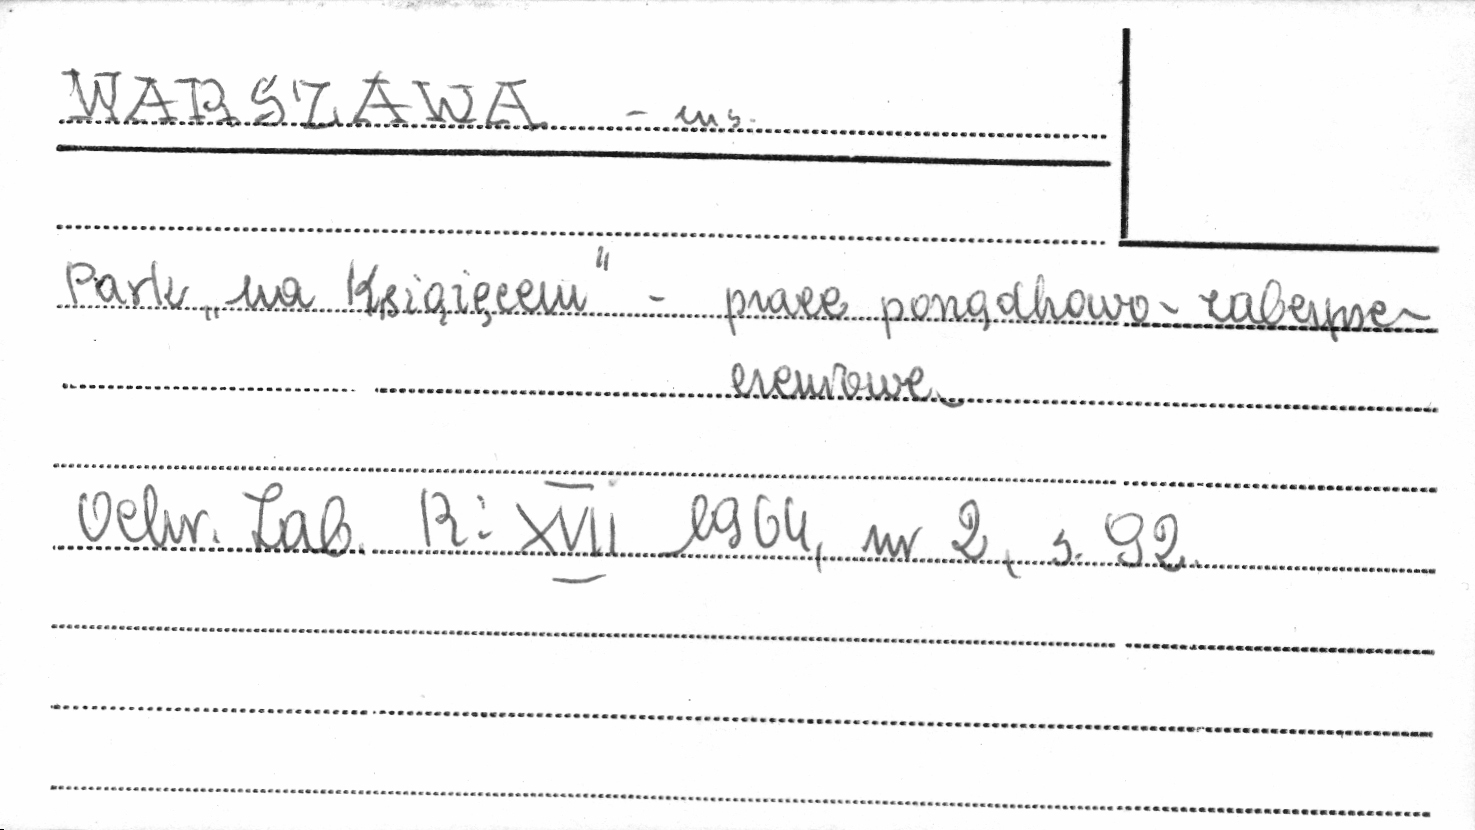 WARSZAWA - m s.
Park „na Książęcem" - prace porządkowo-zabezpie-
czeniowe.
Ochr. Zab. R: XVII 1964, nr 2, s. 92.